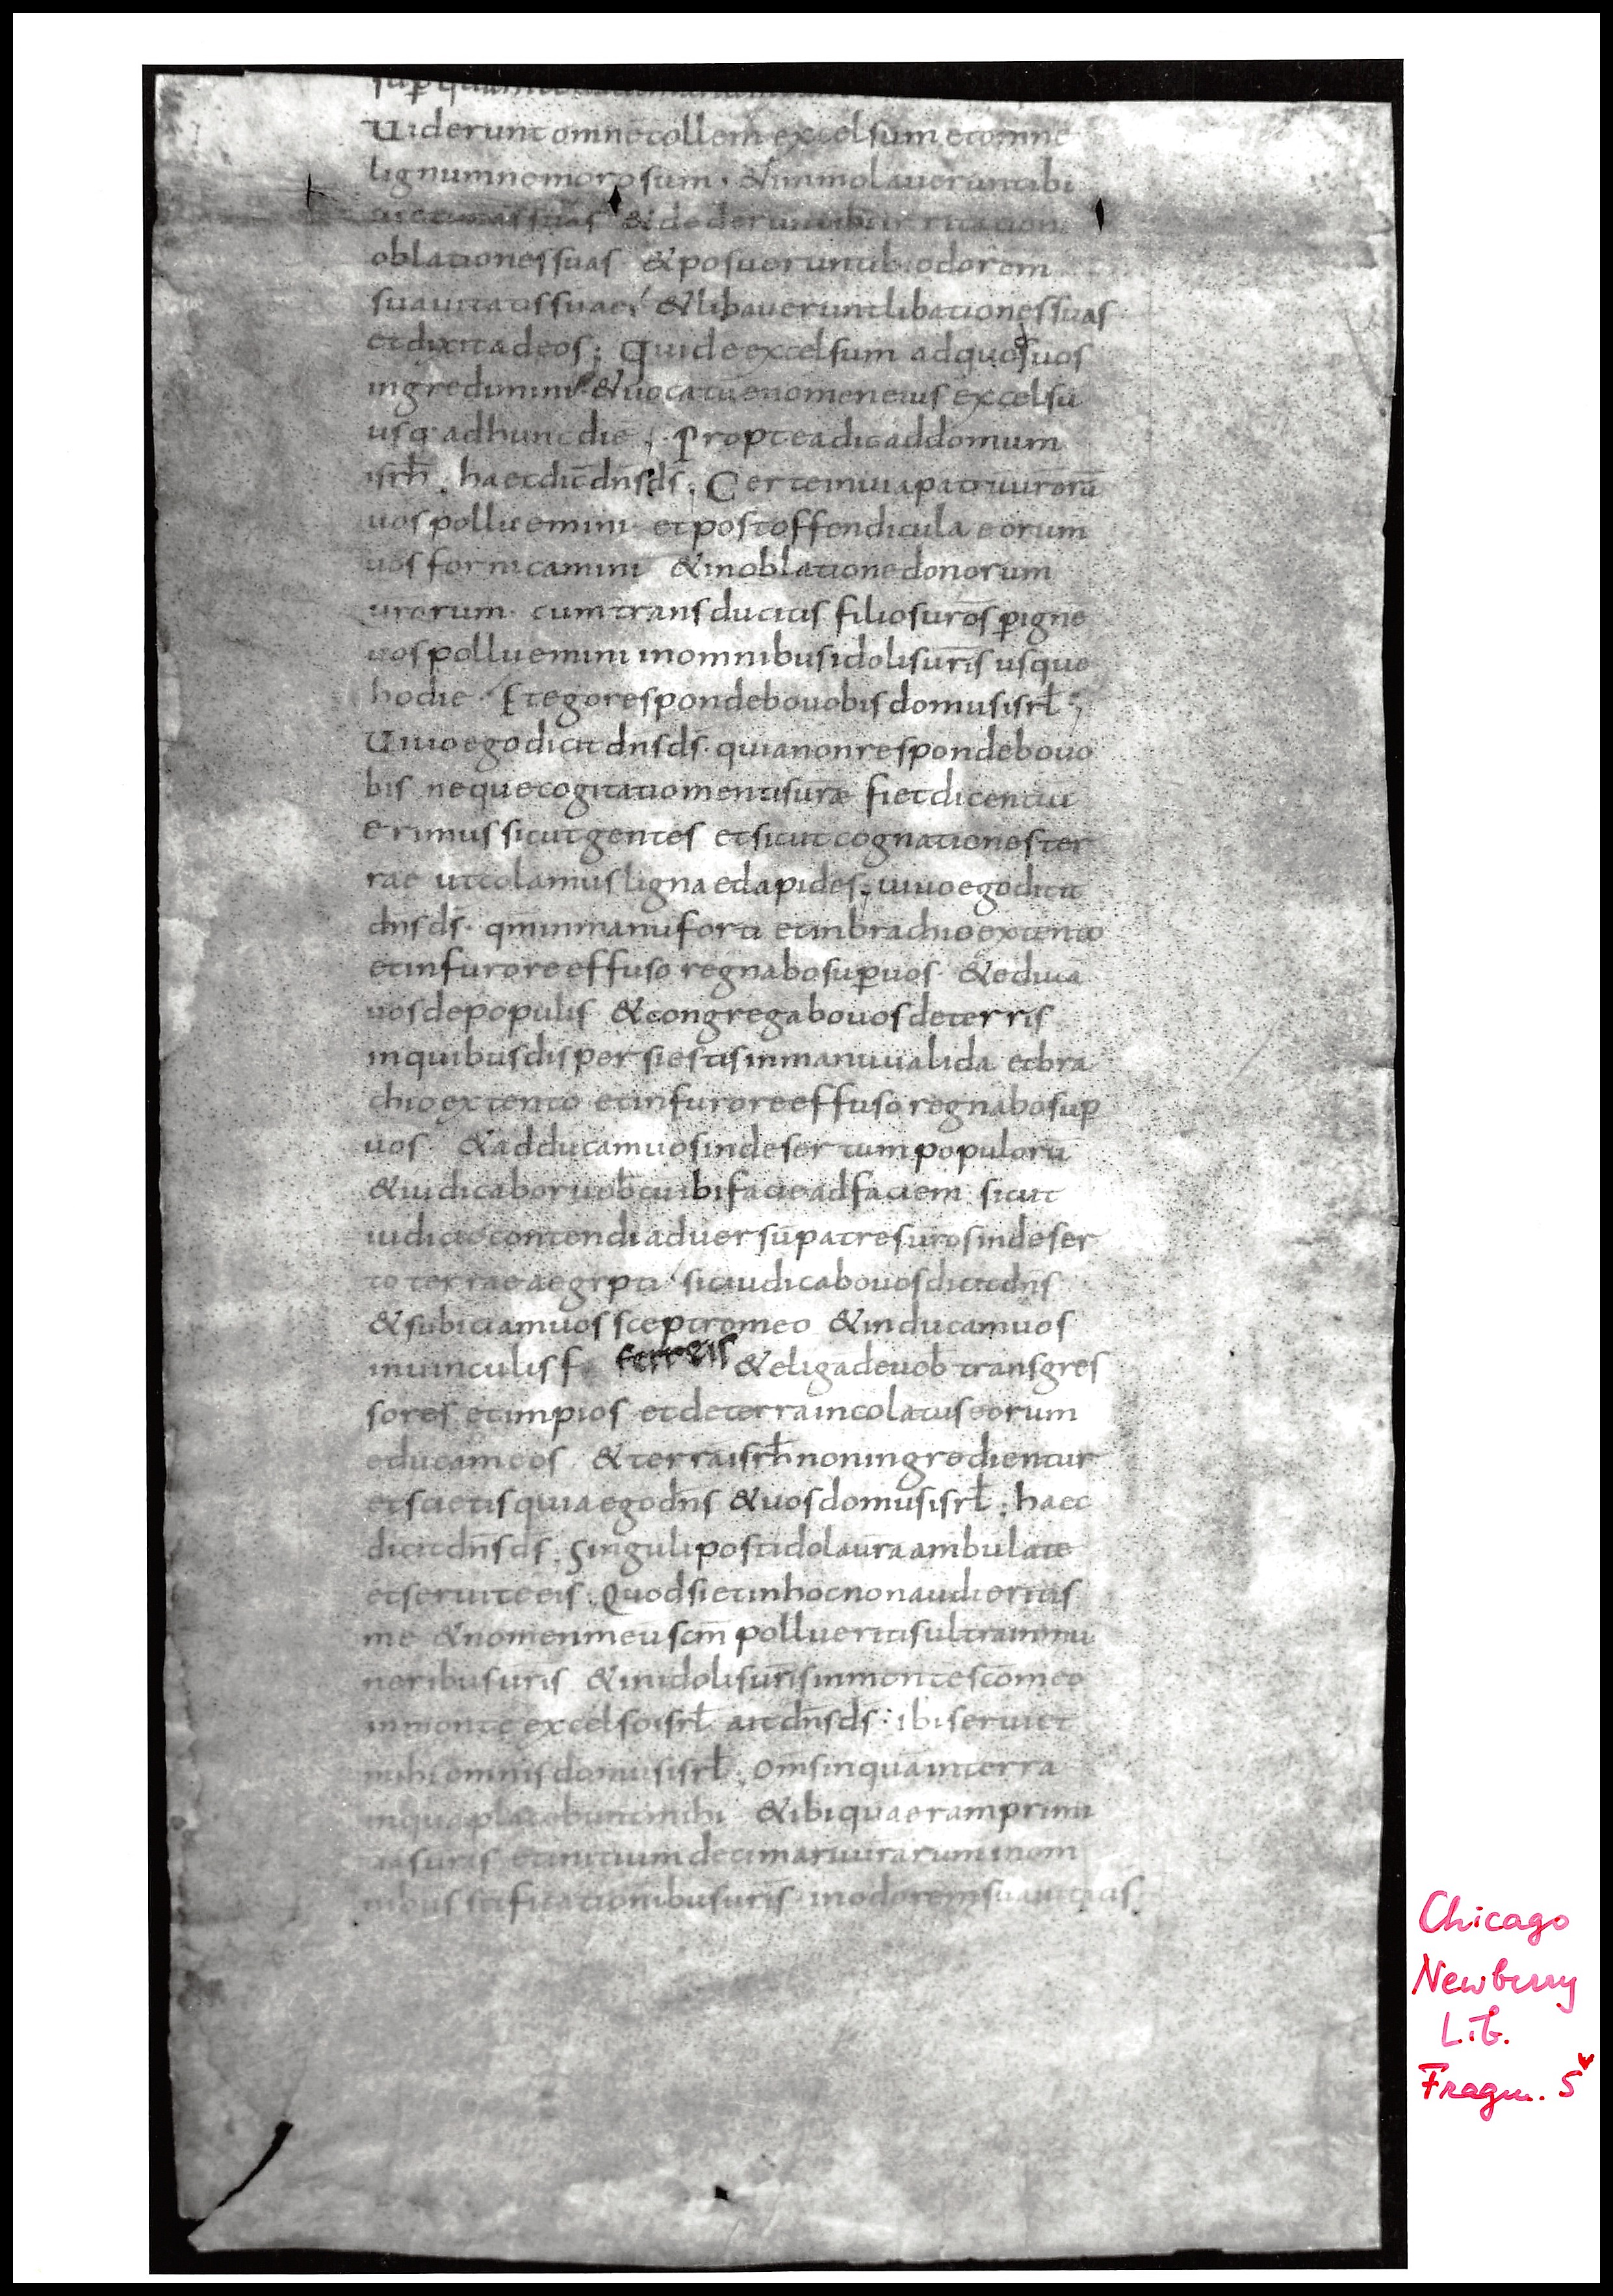 Uiderunt omne collem excelsum et omne
lignum nemorosum · & immolauerunt ibi
uictimas suas & dederunt ibi irritation
oblationes suas & posuerunt ibi odorem
suauitatis suae & libauerunt libationes suas
et dixit ad eos ; Quid e excelsum ad quod uos
ingredimini & uocatū e nomen eius excelsū
usq· ad hunc diē ; Propterea dic ad domum
isrħ . haec dic̄ dn̄s ds̄ ; Certe in uia patrū urorū
uos polluemini et post offendicula eorum
uos fornicamini & in oblatione donorum
urorum · cum transducitis filios uros p ignē
uos polluemini in omnibus idolis uris usque
hodie Et ego respondebo uobis domus isrł ;
Uiuo ego dicit dn̄s ds̄ · quia non respondebo uo
bis neque cogitatio mentis uræ fiet dicentiū
erimus sicut gentes et sicut cognationes ter
rae ut colamus ligna et lapides ; uiuo ego dicit
dn̄s ds̄ · qm̄ in manu forti et in brachio extento
et in furore effuso regnabo sup uos · & educā
uos de populis & congregabo uos de terris
in quibus dispersi estis in manu ualida et bra
chio extento et in furore effuso regnabo sup
uos & adducam uos in desertum populorū
& iudicabor uob cū ibi facie ad faciem sicut
iudicio contendi aduersū patres uros in deser
to terrae aegypti sic iudicabo uos dicit dn̄s
& subiciam uos sceptro meo & inducam uos
in uinculis f ferreis & eligā de uob transgres
sores et impios et de terra incolatus eorum
educam eos & terra isrħ non ingredientur
et scietis quia ego dn̄s & uos domus isrł ; haec
dicit dn̄s ds̄ ; Singuli post idola ura ambulate
et seruite eis ; Quod si et in hoc non audieritis
me & nomen meū scm̄ pollueritis ultra in mu
neribus uris & in idolis uris in monte sco meo
in monte excelso isrł ait dn̄s ds̄ : ibi seruiet
mihi omnis domus isrł ; Oms inquā in terra
in qua placebunt mihi & ibi quaeram primi
tias uras et initium decimarū urarum in om
nibus scificationibus uris in odorem suauitatis
Chicago
Newberry
Lib.
Fragm. 5ᵛ